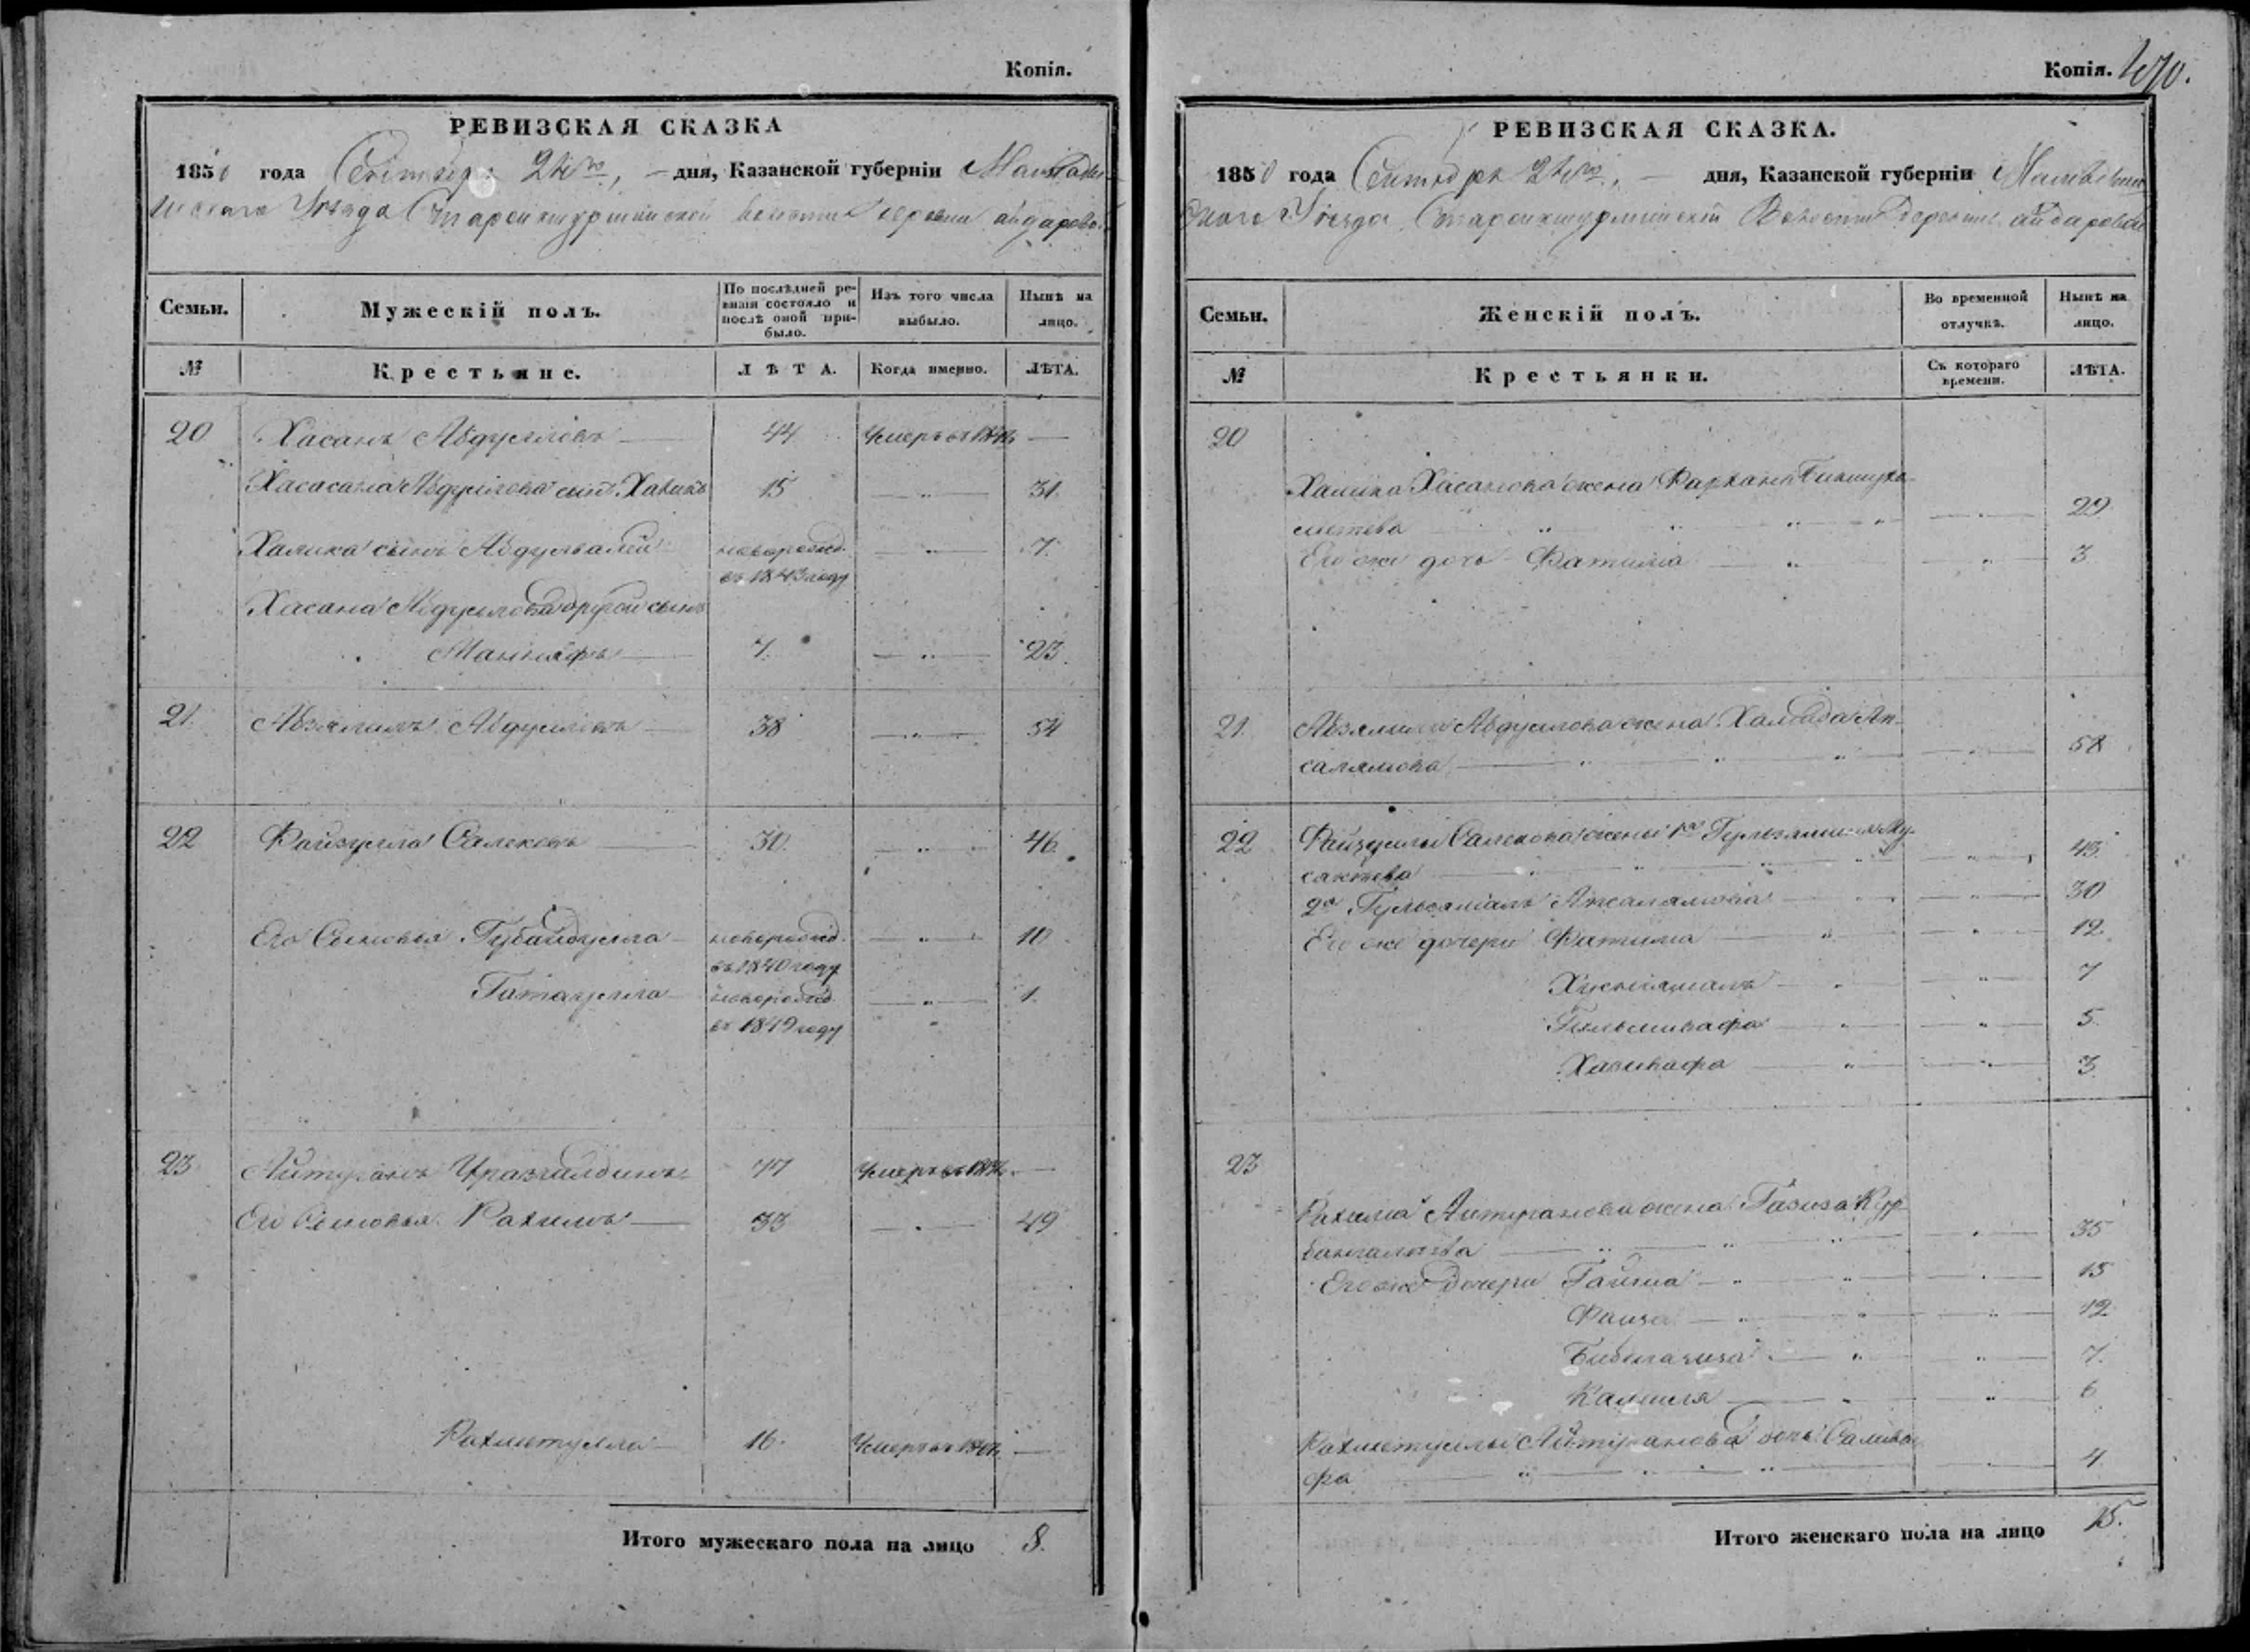 Копія.
РЕВИЗСКАЯ СКАЗКА
1850 года Сентября 2 дня, Казанской губерніи Мамады
шскаго Уѣзда волости деревни Айдаровой
Семьи. Мужескій полъ. По послѣдней ре-
визіи состояло и
послѣ оной при-
было. Изъ того числа
выбыло. Нынѣ на
лицо.
№ Крестьяне. ЛѢТА. Когда именно. ЛѢТА.
20 Хасанъ Абдуловъ 44 Умеръ въ —
Хасасана Абдулова сынъ Халикъ 15 — " — 31.
Халика сынъ Абдулвалей новорожд. — " — 7.
въ 1843 году
Хасана Абдулова другой сынъ
Маннафъ 7. — " — 23.
21. Абзялилъ Абдуловъ 38 — " — 54
22 Файзулла Салеховъ 30. — " — 46.
Его Сыновья Губайдулла новорожд. — " — 10.
въ 1840 году
Гатаулла новорожд. — " — 1.
въ 1849 году
23 Айтуганъ Уразгилдинъ 77 Умеръ въ —
Его Сыновья Рахимъ 33 — " — 49
Рахметулла 16. Умеръ въ —
Итого мужескаго пола на лицо 8.
Копія. 470.
РЕВИЗСКАЯ СКАЗКА.
1850 года Сентября 2 дня, Казанской губерніи Мамадыш
скаго Уѣзда Волости деревни Айдаровой
Семьи. Женскій полъ. Во временной
отлучкѣ. Нынѣ на
лицо.
№ Крестьянки. Съ котораго
времени. ЛѢТА.
20
Халика Хасанова жена Бикмухо-
метева — " — 29
Его же дочь Фатима — " — 3
21. Абзялила Абдулова жена Ап-
салямова — " — 58
22 Файзуллы Салехова жены 1я Му-
саева — " — 43.
2я Гульжамалъ Апсалямова — " — 30
Его же дочери Фатима — " — 12.
Хуснижамалъ — " — 7
— " — 5.
Хабивафа — " — 3.
23
Рахима Айтуганова жена Газиза Кур-
бангалеева — " — 35
Его же Дочери Гайша — " — 15
Фаиза — " — 12.
— " — 7.
Камиля — " — 6
Рахметуллы Айтуганова дочь Салива-
фа — " — 4.
Итого женскаго пола на лицо 15.